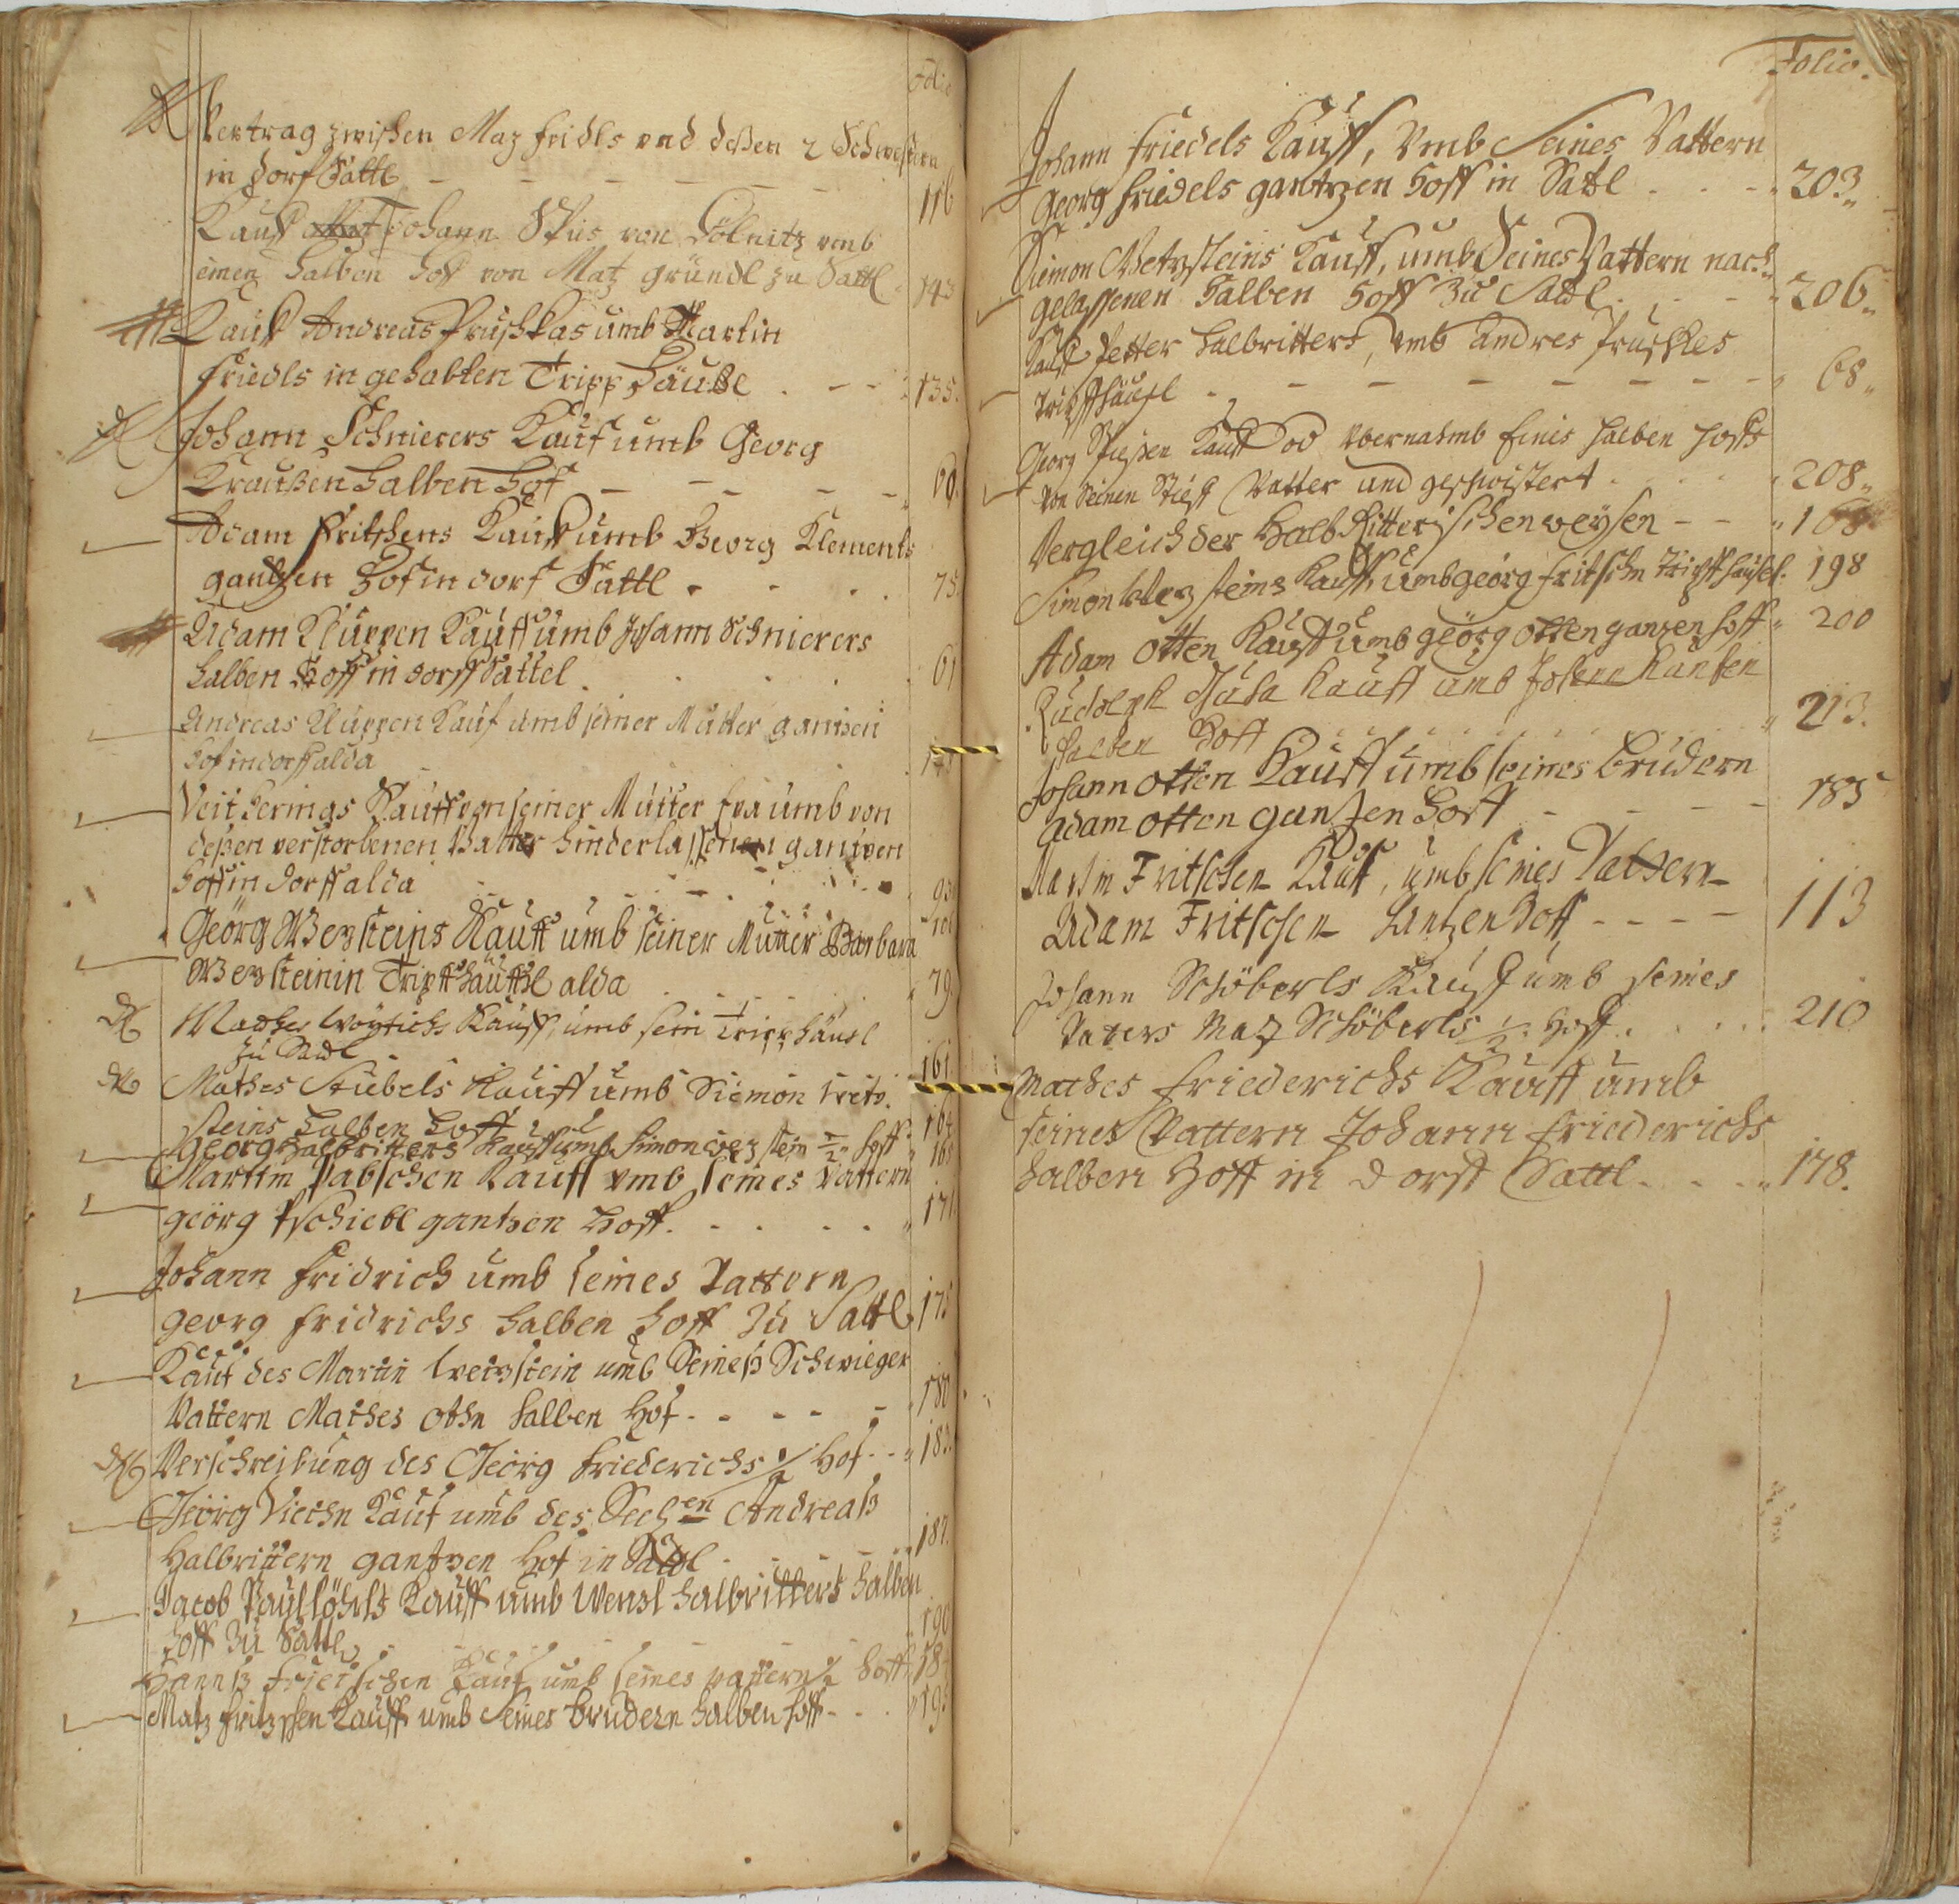 Folio
Vertrag zwischen Maz Fridls und deßen 2 Schwestern
in Dorf Sattl 116
Kauf Johann Spies von Gölnitz umb
einen halben Hof von Matz Gründl zu Sattl 143
Kauf Andreas Pruschkas umb Martin
Friedls in gehabten Tripp Häußl 135.
Johann Schnierers Kauf umb Georg
Kraußen halben Hof 60.
Adam Fritschens Kauf umb Georg Klements
gantzen Hof in dorf Sattl 75.
Adam Kluppen Kauff umb Johann Schnierers
halben Hoff in dorff Sattel 61
Andreas Kluppen Kauf umb seiner Mutter gantzen
Hof in dorff alda
Veit Herings Kauff von seiner Mutter Eva umb von
deßen verstorbenen Vatter hinderlassenen gantzen
Hoff in dorff alda 93
Georg Wezsteins Kauff umb seiner Mutter Barbara 106
Wezsteinin Tripffhäußl alda 79.
Mathes Woytichs Kauff, umb sein Tripphäusl
zu Sadl 161
Mathes Stubels Kauff umb Siemon Wetz-
steins halben Hoff
Georg Halbritters Kauff umb Simon wezstein 1/2 Hoff 168
Martin Pabschen Kauff umb seines Vattern
georg Pschiebl gantzen Hoff. 171.
Johann Fridrich umb seines Vattern
georg Fridrichs halben Hoff zu Sattl 175
Kauf des Martin Wetzstein umb Seineß Schwieger
Vattern Mathes Othn halben Hof 180
Verschreibung des Georg Friederichs 1/2 Hof 183.
Georg Viechn Kauf umb des Seel:en Andreaß
Halbrittern gantzen Hof in Sattl 187.
Jacob Paullöhrls Kauff umb Wenzl halbritters halben
Hoff zu Sattl 190
Hannß Frietschen Kauf umb seines vattern 1/2 Hoff 18
Matz Fritzschen Kauff umb Seines brudern halben Hoff 193
Folio.
Johann Friedels Kauff, Vmb Seines Vattern
Georg Friedels gantzen Hoff in Satl 203.
Siemon Wetzsteins Kauff, umb Seines Vattern nach-
gelassenen halben Hoff zu Sattl 206.
Kauf Petter halbritters, vmb Andres Pruschkes
Tripffhäusl 68.
Georg Spießen Kauff od Vbernahmb Eines halben Hoffs
von Seinen Stieff Vatter und geschwistert 208.
Vergleich der Halb Ritterischen weysen 168
Simon Wezsteins Kauff, umb georg Fritschn Tripffhäusel. 198
Adam Otten Kauff umb georg Otten ganzen Hoff 200
Rudolph Kauff umb Johann
halben Hoff 213.
Johann Otten Kauff umb seines brudern
Adam Otten gantzen Hoff 185
Martin Fritschen Kauf, umb seines Vattern
Adam Fritschen Gantzen Hoff 113
Johann Schöberls Kauff umb seines
Vaters Maz Schöberls 1/2 Hoff. 210
Mathes Friederichs Kauff umb
seines Vattern Johann Friederichs
halben Hoff in Dorff Sattl 178.